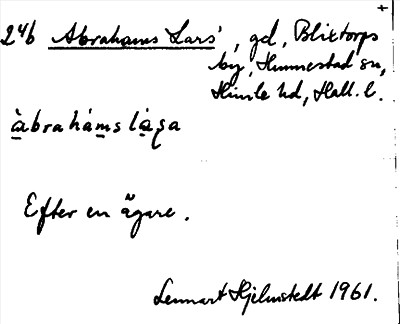 2⁴b Abrahams Lars', gd, Blixtorps
by, Hunnestad sn,
Himle hd, Hall. l.
àbrahàms làsa
Efter en ägare.
Lennart Hjelmstedt 1961.